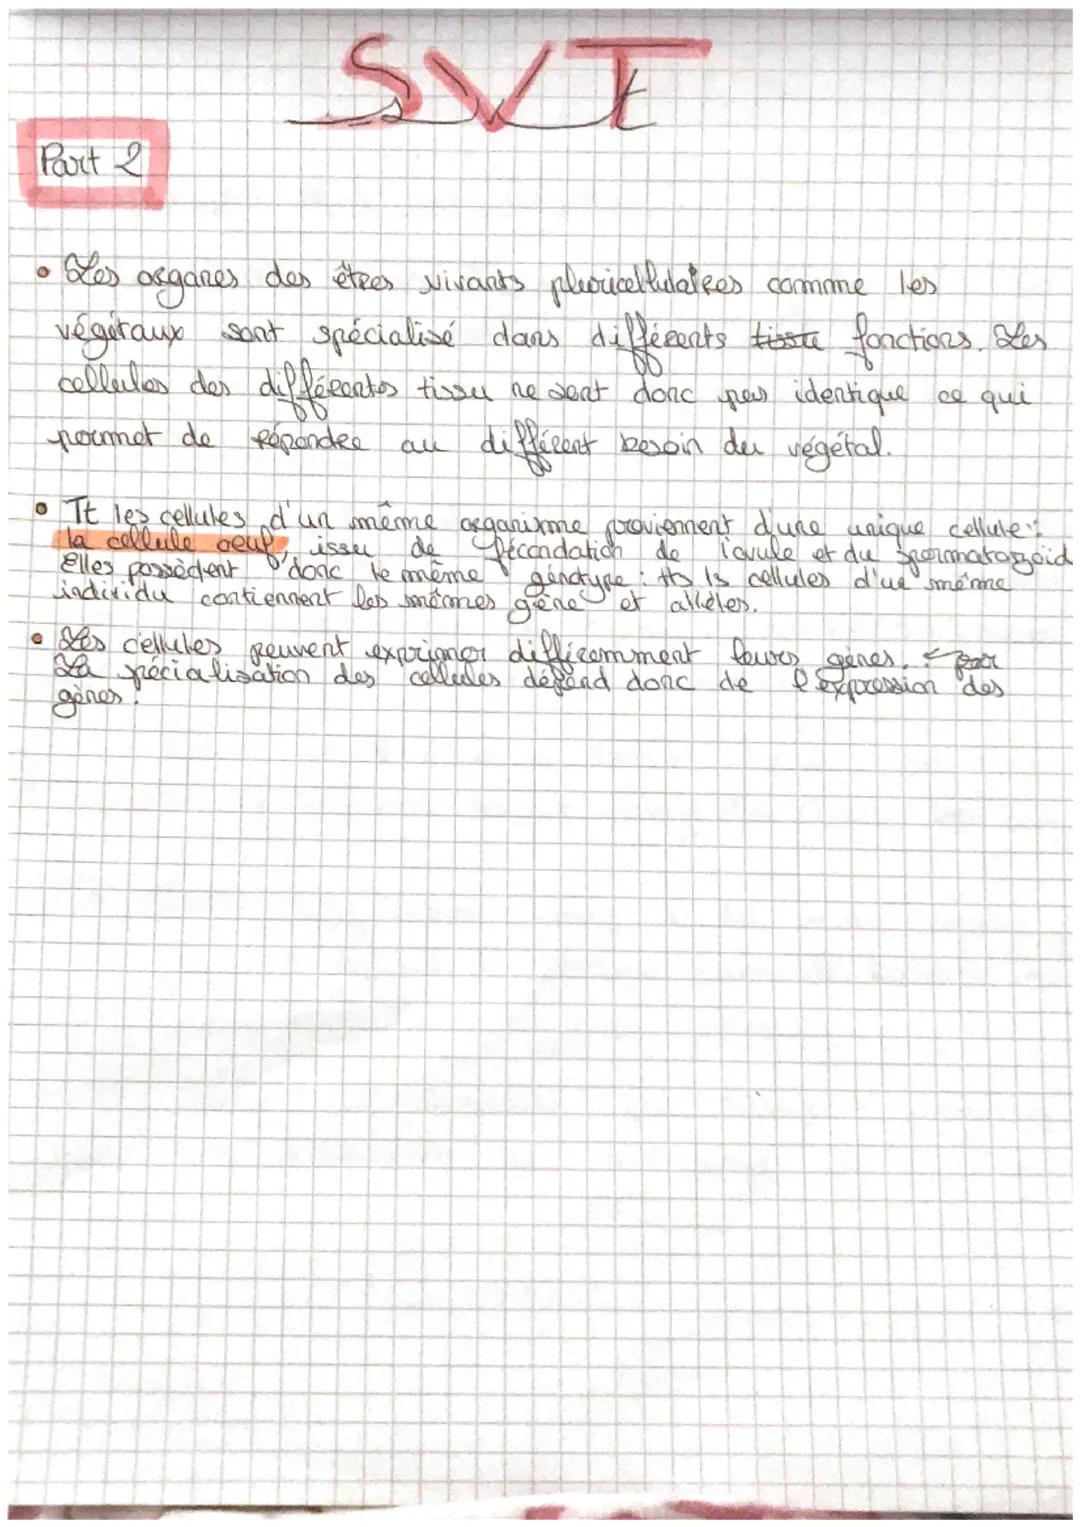 SVT
Part 2
• Les organes des êtres vivants pluricellulaires comme les
végétaux sont spécialisé dans différents tissu fonctions. Les
cellules des différentes tissu ne sont donc pas identique ce qui
permet de répondre au différent besoin du végétal.
• Tt les cellules d'un même organisme proviennent d'une unique cellule :
la cellule oeuf, issu de fécondation de l'ovule et du spermatozoid
Elles possèdent donc le même génotype : tts ls cellules d'un même
individu contiennent les mêmes gène et allèles.
• Les cellules peuvent exprimer différemment leurs gènes.
La spécialisation des cellules dépend donc de l'expression des
gènes.